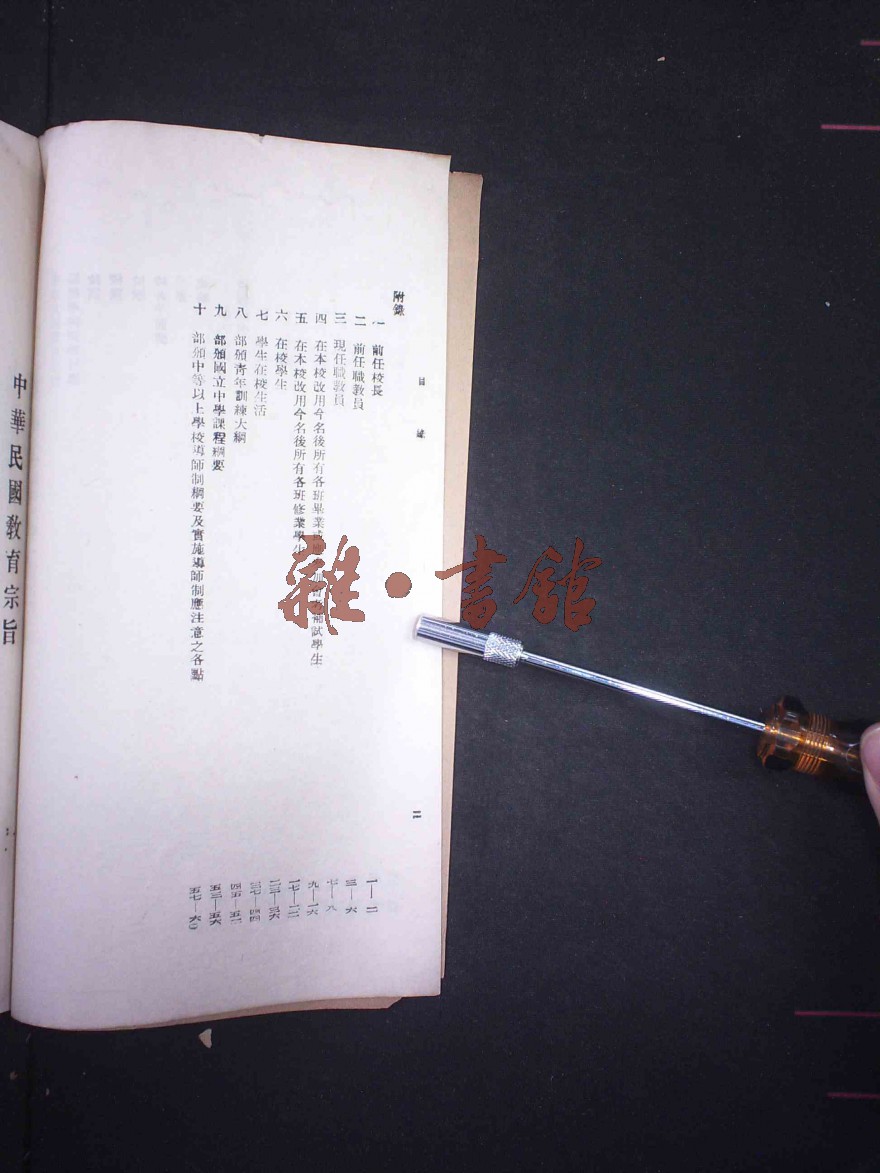 附錄
目錄
二
一 前任校長 一—二
二 前任職教員 三—六
三 現任職教員 七—八
四 在本校改用今名後所有各班畢業 補試學生 九—一六
五 在本校改用今名後所有各班修業學生 一七—二二
六 在校學生 二三—三六
七 學生在校生活 三七—四四
八 部頒青年訓練大綱 四五—五二
九 部頒國立中學課程綱要 五三—五六
十 部頒中等以上學校導師制綱要及實施導師制應注意之各點 五七—六〇
中華民國教育宗旨
雜·書館